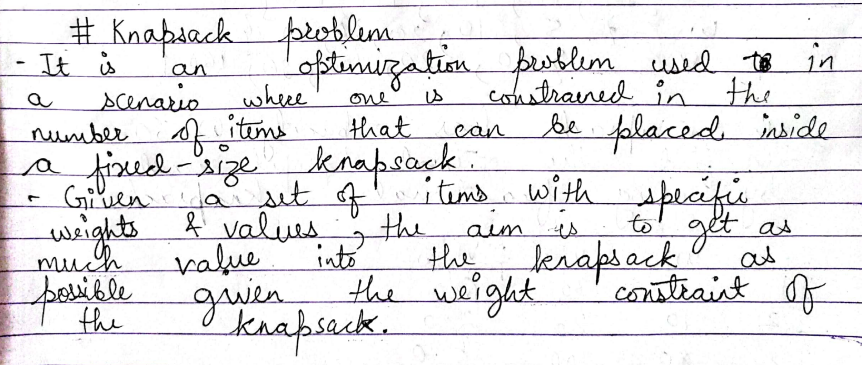 # Knapsack problem
- It is an optimization problem used in
a scenario where one is constrained in the
number of items that can be placed inside
a fixed-size knapsack.
- Given a set of items with specific
weights & values, the aim is to get as
much value into the knapsack as
possible given the weight constraint of
the knapsack.